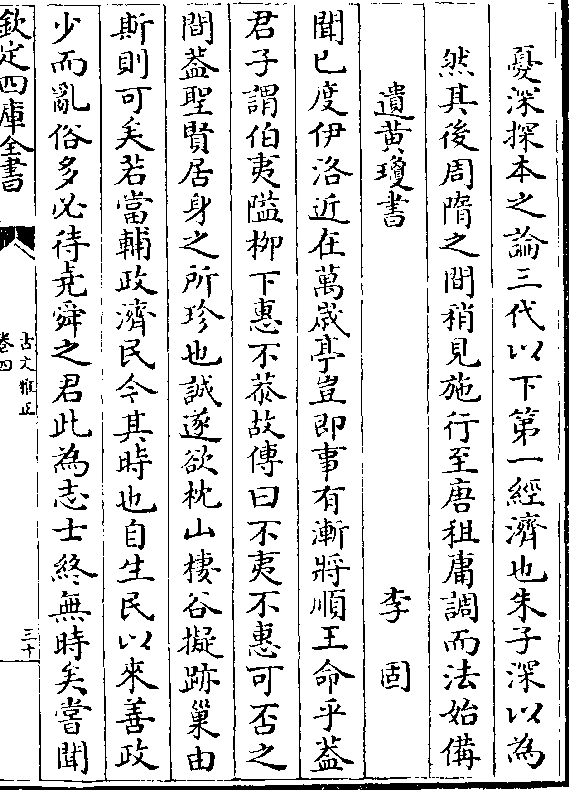 憂深探本之論三代以下第一經濟也朱子深以為
然其後周隋之間稍見施行至唐租庸調而法始備
遺黃瓊書 李固
聞已度伊洛近在萬歲亭豈即事有漸將順王命乎葢
君子謂伯夷隘柳下惠不恭故傳曰不夷不惠可否之
間葢聖賢居身之所珍也誠遂欲枕山棲谷擬跡巢由
斯則可矣若當輔政濟民今其時也自生民以來善政
少而亂俗多必待堯舜之君此為志士終無時矣嘗聞
欽定四庫全書
古文雅正
卷四
三十